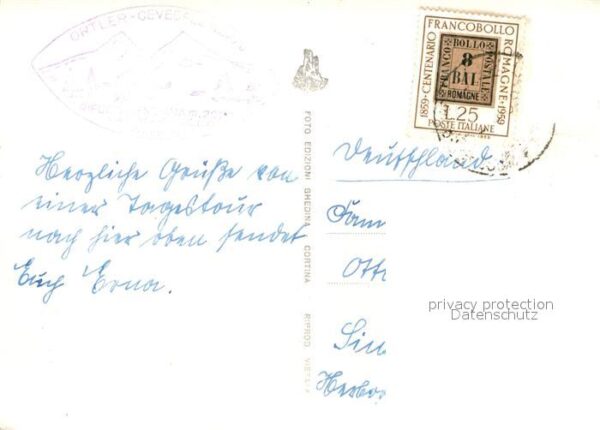 ORTLER - CEVEDALE
Herzliche Grüße von
einer Tagestour
nach hier oben sendet
Euch Erna.
FOTO EDIZIONI GHEDINA CORTINA
1859-CENTENARIO FRANCOBOLLO ROMAGNE-1959
FRANCO BOLLO POSTALE
8
BAI
ROMAGNE
L.25
POSTE ITALIANE
Deutschland
Fam
Otto
privacy protection
Datenschutz